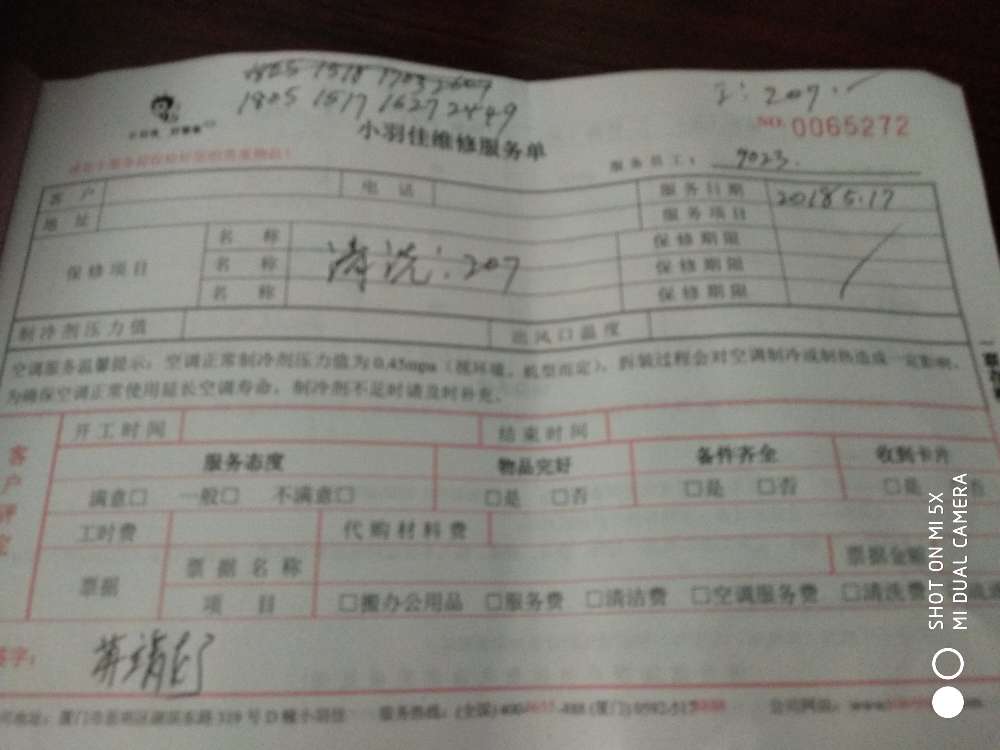 1805 1518 1703 2607
1805 1517 1627 2449
207
NO. 0065272
小羽佳维修服务单
服务员工: 9023.
客户 电话 服务日期 2018 5.17
地址 服务项目
保修项目 名称 清洗:207 保修期限
名称 保修期限
名称 保修期限
制冷剂压力值 出风口温度
空调服务温馨提示:空调正常制冷剂压力值为0.45mpa(视环境、机型而定),拆装过程会对空调制冷或制热造成一定影响,
为确保空调正常使用延长空调寿命,制冷剂不足时请及时补充。
客户评定
开工时间 结束时间
服务态度 物品完好 备件齐全 收到卡片
满意□ 一般□ 不满意□ □是 □否 □是 □否 □是 否
工时费 代购材料费
票据 票据名称 票据金额
项目 □搬办公用品 □服务费 □清洁费 □空调服务费 □清洗费
签字:
司地址:厦门市 319号D幢小羽佳 服务热线:(全国)400 -888 (厦门)0592-517 公司网站:www
SHOT ON MI 5X
MI DUAL CAMERA